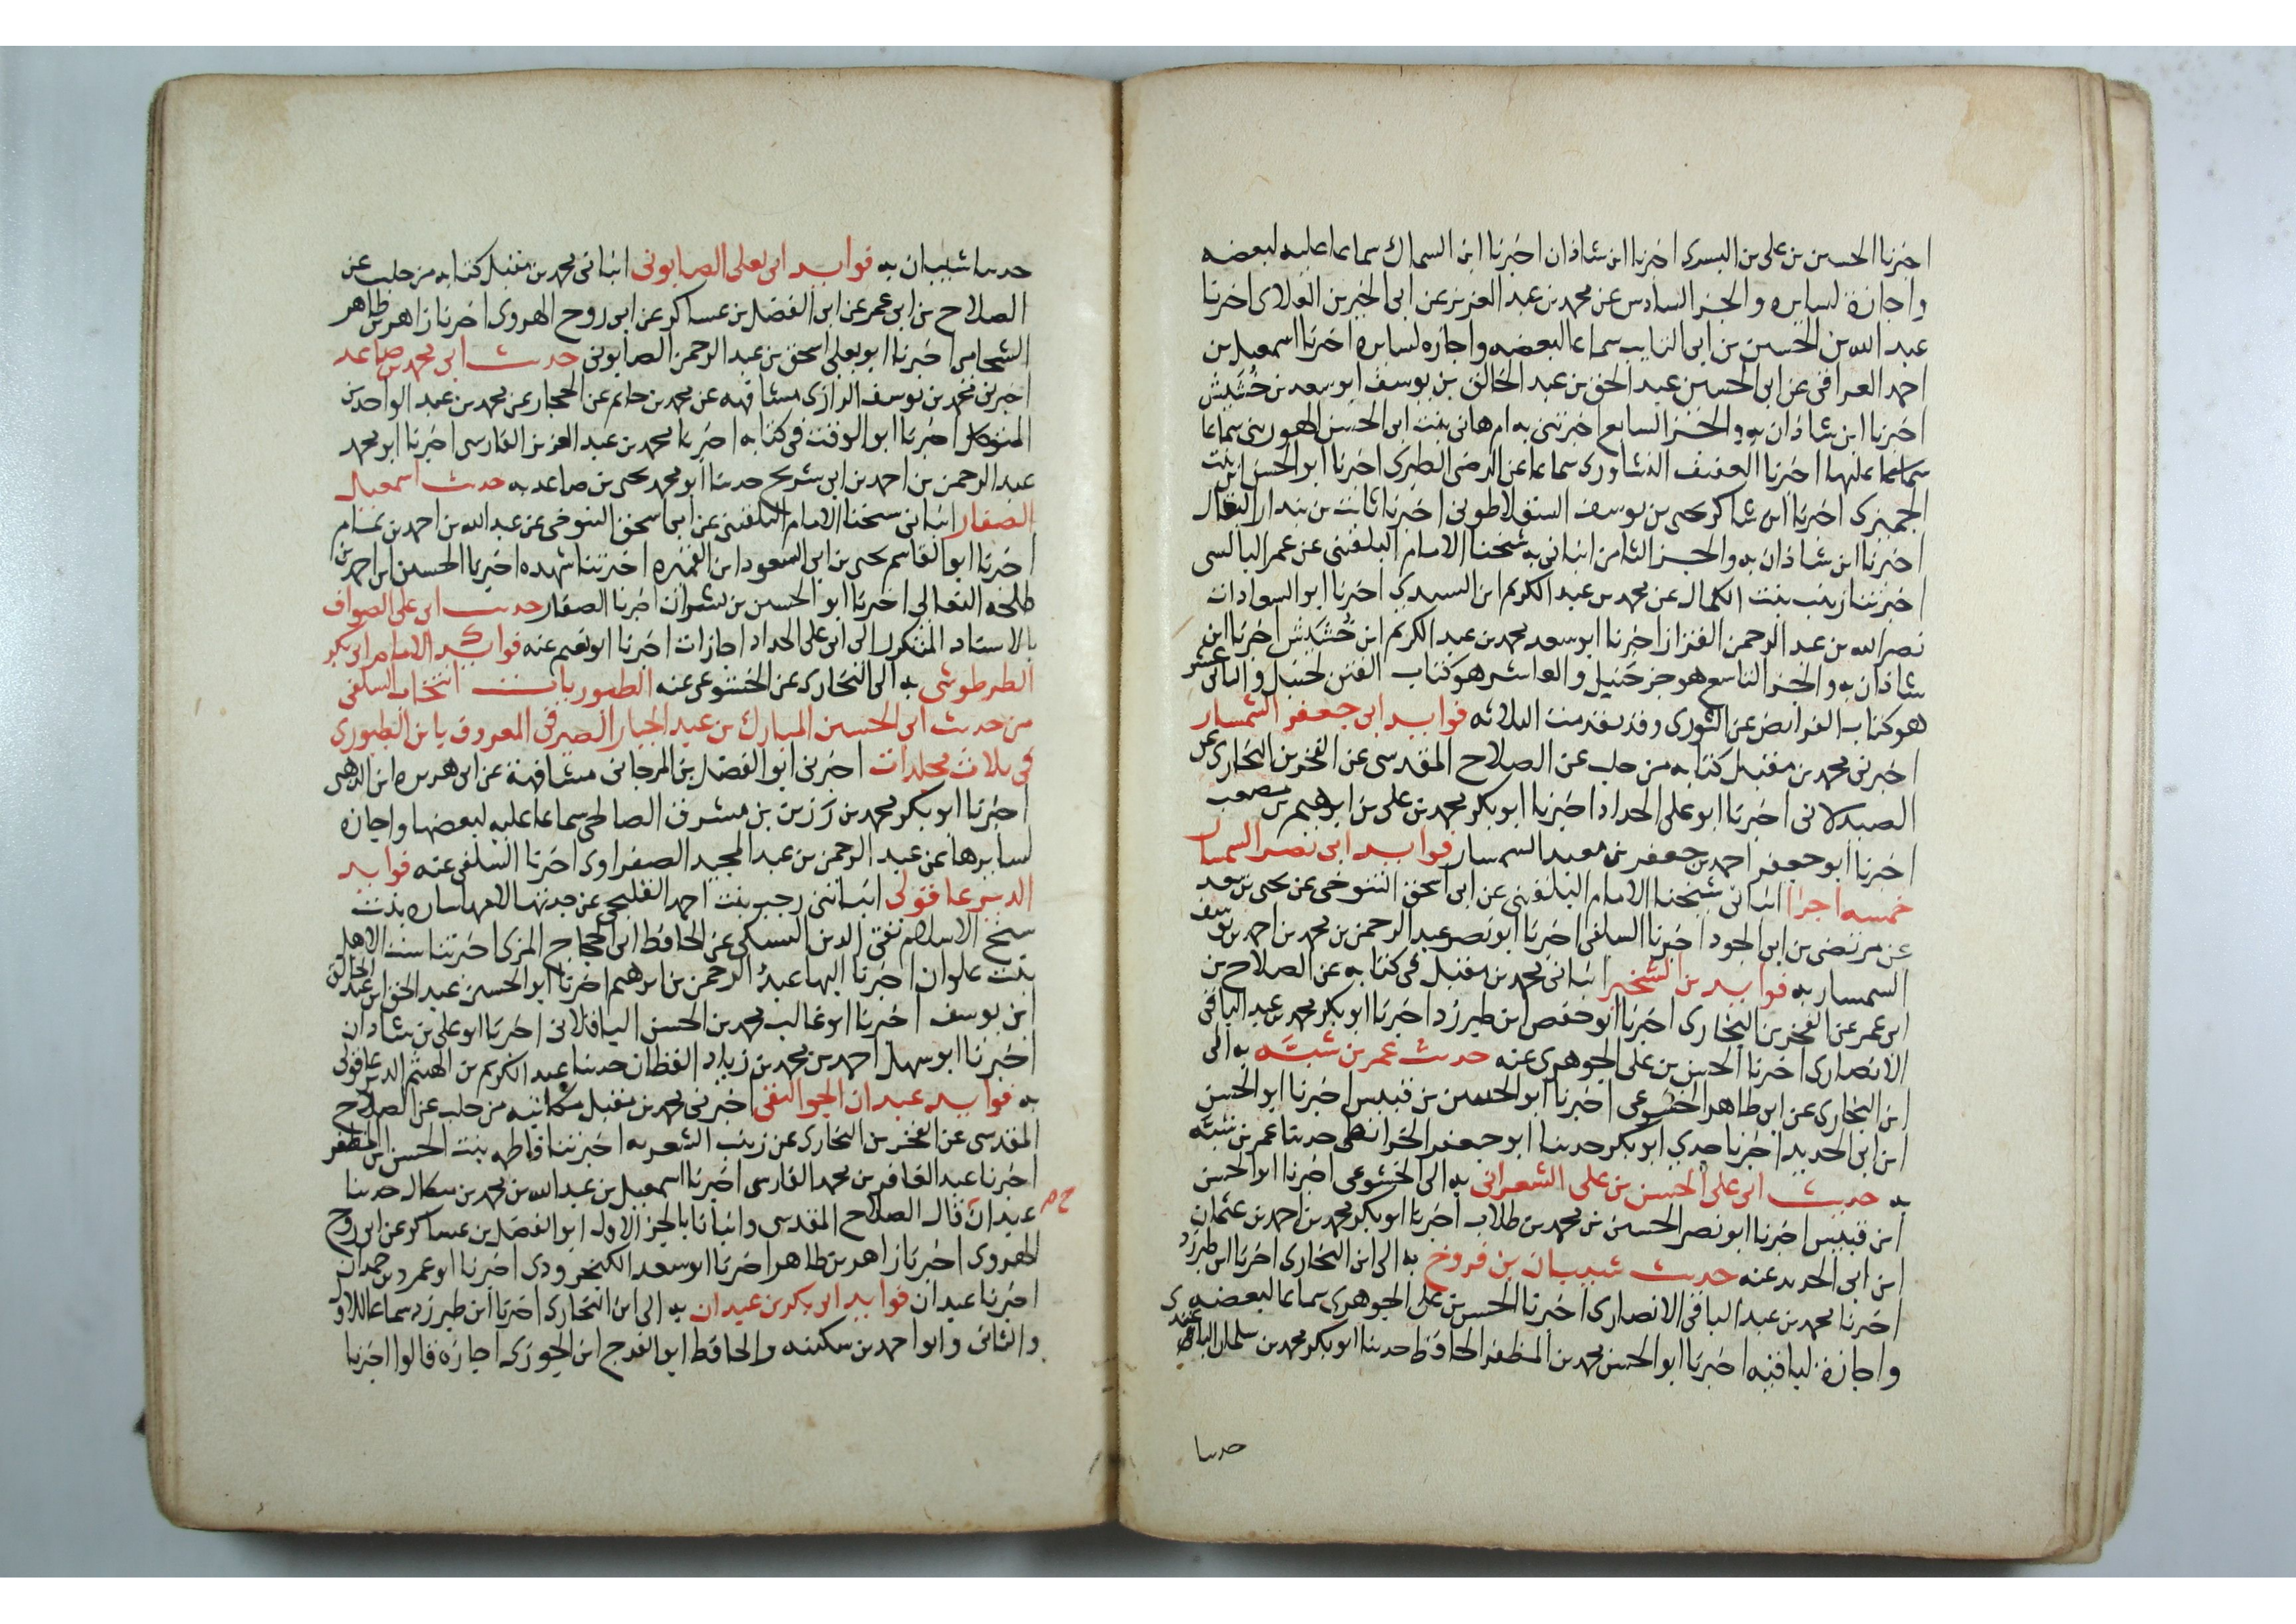 اخبرنا الحسين بن على بن البسرى اخبرنا ابن شاذان اخبرنا ابن السماك سماعا عليه لبعضه
واجازة لسايره والجزء السادس عن محمد بن عبد العزيز عن ابى الخير بن العلاى اخبرنا
عبد الله بن الحسين بن ابى التايب سماعا لبعضه واجازه لسايره اخبرنا اسمعيل بن
احمد العراقى عن ابى الحسين عبد الحق بن عبد الخالق بن يوسف ابو سعد بن خُشَيش
اخبرنا ابن شاذان به والجزء السابع اخبرتنى به ام هانى بنت ابى الحسن الهورينى سماعا
عليها اخبرنا العفيف النشاورى سماعا عن الرضى الطبرى اخبرنا ابو الحسن ابن بنت
الجميزى اخبرنا ابن شاكر يحيى بن يوسف السقلاطونى اخبرنا ثابت بن بندار البقال
اخبرنا ابن شاذان به والجزء الثامن انبانى به شيخنا الامام البلقينى عن عمر البالسى
اخبرتنا زينب بنت الكمال عن محمد بن عبد الكريم ابن السيدي اخبرنا ابو السعادات
نصر الله بن عبد الرحمن القزاز اخبرنا ابو سعد محمد بن عبد الكريم ابن خُشَيْش اخبرنا ابن
شاذان به والجزء التاسع هو جزء حنبل والعاشر هو كتاب الفتن لحنبل والثانى عشر
هو كتاب الفرايض عن الثورى وقد تقدمت الثلاثه فوايد ابى جعفر السمسار
اخبرنى محمد بن مقبل كتابه من حلب عن الصلاح المقدسى عن الفخر بن البخارى عن
الصيدلانى اخبرنا ابو على الحداد اخبرنا ابو بكر محمد بن على بن ابرهيم بن مصعب
اخبرنا ابو جعفر احمد بن جعفر بن معبد السمسار فوايد ابى نصر السمسار
خمسه اجزا انبانى شيخنا الامام البلقينى عن ابى اسحق التنوخى عن يحيى بن سعد
عن مرتضى بن ابى الجود اخبرنا السلفى اخبرنا ابو نصر عبد الرحمن بن محمد بن احمد بن يوسف
السمسار به فوايد بن الشخير انبانى محمد بن مقبل فى كتابه عن الصلاح بن
ابى عمر عن الفخر بن البخارى اخبرنا ابو حفص ابن طبرزد اخبرنا ابو بكر محمد بن عبد الباقى
الانصارى اخبرنا الحسن بن على الجوهرى عنه حديث عمر بن شبَّه به الى
ابن البخارى عن ابى طاهر الخشوعى اخبرنا ابو الحسين بن قبيس اخبرنا ابو الحسن
ابن ابى الحديد اخبرنا جدي ابو بكر حدثنا ابو جعفر الخرائطى حدثنا عمر بن شبَّه
به حديث ابى على الحسن بن على الشعرانى به الى الخشوعى اخبرنا ابو الحسن
ابن قبيس اخبرنا ابو نصر الحسين بن محمد بن طلاب اخبرنا ابو بكر محمد بن احمد بن عثمان
ابن ابى الحديد عنه حديث شيبان بن فروخ به الى ابن البخارى اخبرنا ابن طبرزد
اخبرنا محمد بن عبد الباقى الانصارى اخبرنا الحسن بن على الجوهرى سماعا لبعضه
واجازة لباقيه اخبرنا ابو الحسن محمد بن المظفر الحافظ حدثنا ابو بكر محمد بن سليمان الباغندى
حدثنا
حدثنا شيبان به فوايد ابى يعلى الصابونى انبانى محمد بن مقبل كتابه من حلب عن
الصلاح بن ابى عمر عن ابى الفضل بن عساكر عن ابى روح الهروى اخبرنا زاهر بن طاهر
الشحامى اخبرنا ابو يعلى اسحق بن عبد الرحمن الصابونى حديث ابى محمد بن صاعد
اخبرنى محمد بن يوسف الرازى مشافهه عن محمد بن حاتم عن الحجار عن محمد بن عبد الواحد بن
المتوكل اخبرنا ابو الوقت فى كتابه اخبرنا محمد بن عبد العزيز الفارسى اخبرنا ابو محمد
عبد الرحمن بن احمد بن ابى شريح حدثنا ابو محمد يحيى بن صاعد به حديث اسمعيل
الصفار انبانى شيخنا الامام البلقينى عن ابى اسحق التنوخى عن عبد الله بن احمد بن تمام
اخبرنا ابو القاسم يحيى بن ابى السعود ابن القميره اخبرتنا شهده اخبرنا الحسين ابن احمد بن
طلحه النعالي اخبرنا ابو الحسين بن بشران اخبرنا الصفار حديث ابى على الصواف
بالاسناد المتكرر الى ابى على الحداد اجازات اخبرنا ابو نعيم عنه فوايد الامام ابى بكر
الطرطوشى به الى البخارى عن الخشوعى عنه الطيوريات انتخاب السلفى
من حديث ابى الحسين المبارك بن عبد الجبار الصيرفى المعروف بابن الطيورى
فى ثلاث مجلدات اخبرنى ابو الفضل بن المرجانى مشافهة عن ابى هريره ابن الذهبى
اخبرنا ابو بكر محمد بن رَزين بن مشرف الصالحى سماعا عليه لبعضها واجازه
لسايرها عن عبد الرحمن بن عبد المجيد الصفراوى اخبرنا السلفى عنه فوايد
الديرعاقولى انباتنى رجب بنت احمد القليجى عن جدتها لامها ساره بنت
شيخ الاسلام تقى الدين السبكى عن الحافظ ابى الحجاج المزى اخبرتنا ست الاهل
بنت علوان اخبرنا البها عبد الرحمن بن ابرهيم اخبرنا ابو الحسين عبد الحق ابن عبد الخالق
ابن يوسف اخبرنا ابو غالب محمد بن الحسن الباقلانى اخبرنا ابو على بن شاذان
اخبرنا ابو سهل احمد بن محمد بن زياد القطان حدثنا عبد الكريم بن الهيثم الديرعاقولى
به فوايد عبدان الجواليقى اخبرنى محمد بن مقبل مكاتبه من حلب عن الصلاح
المقدسى عن الفخر بن البخارى عن زينب الشعريه اخبرتنا فاطمه بنت الحسن ابن المظفر
اخبرنا عبد الغافر بن محمد الفارسى اخبرنا اسمعيل بن عبد الله بن محمد بن ميكال حدثنا
عبدان قال الصلاح المقدسى وانبانا بالجزء الاول ابو الفضل بن عساكر عن ابى روح
الهروى اخبرنا زاهر بن طاهر اخبرنا ابو سعد الكنجرودى اخبرنا ابو عمرو بن حمدان
اخبرنا عبدان فوايد ابو بكر بن عبدان به الى ابن البخارى اخبرنا ابن طبرزد سماعا للاول
والثانى وابو احمد بن سكينه والحافظ ابو الفرج ابن الجوزى اجازه قالوا اخبرنا